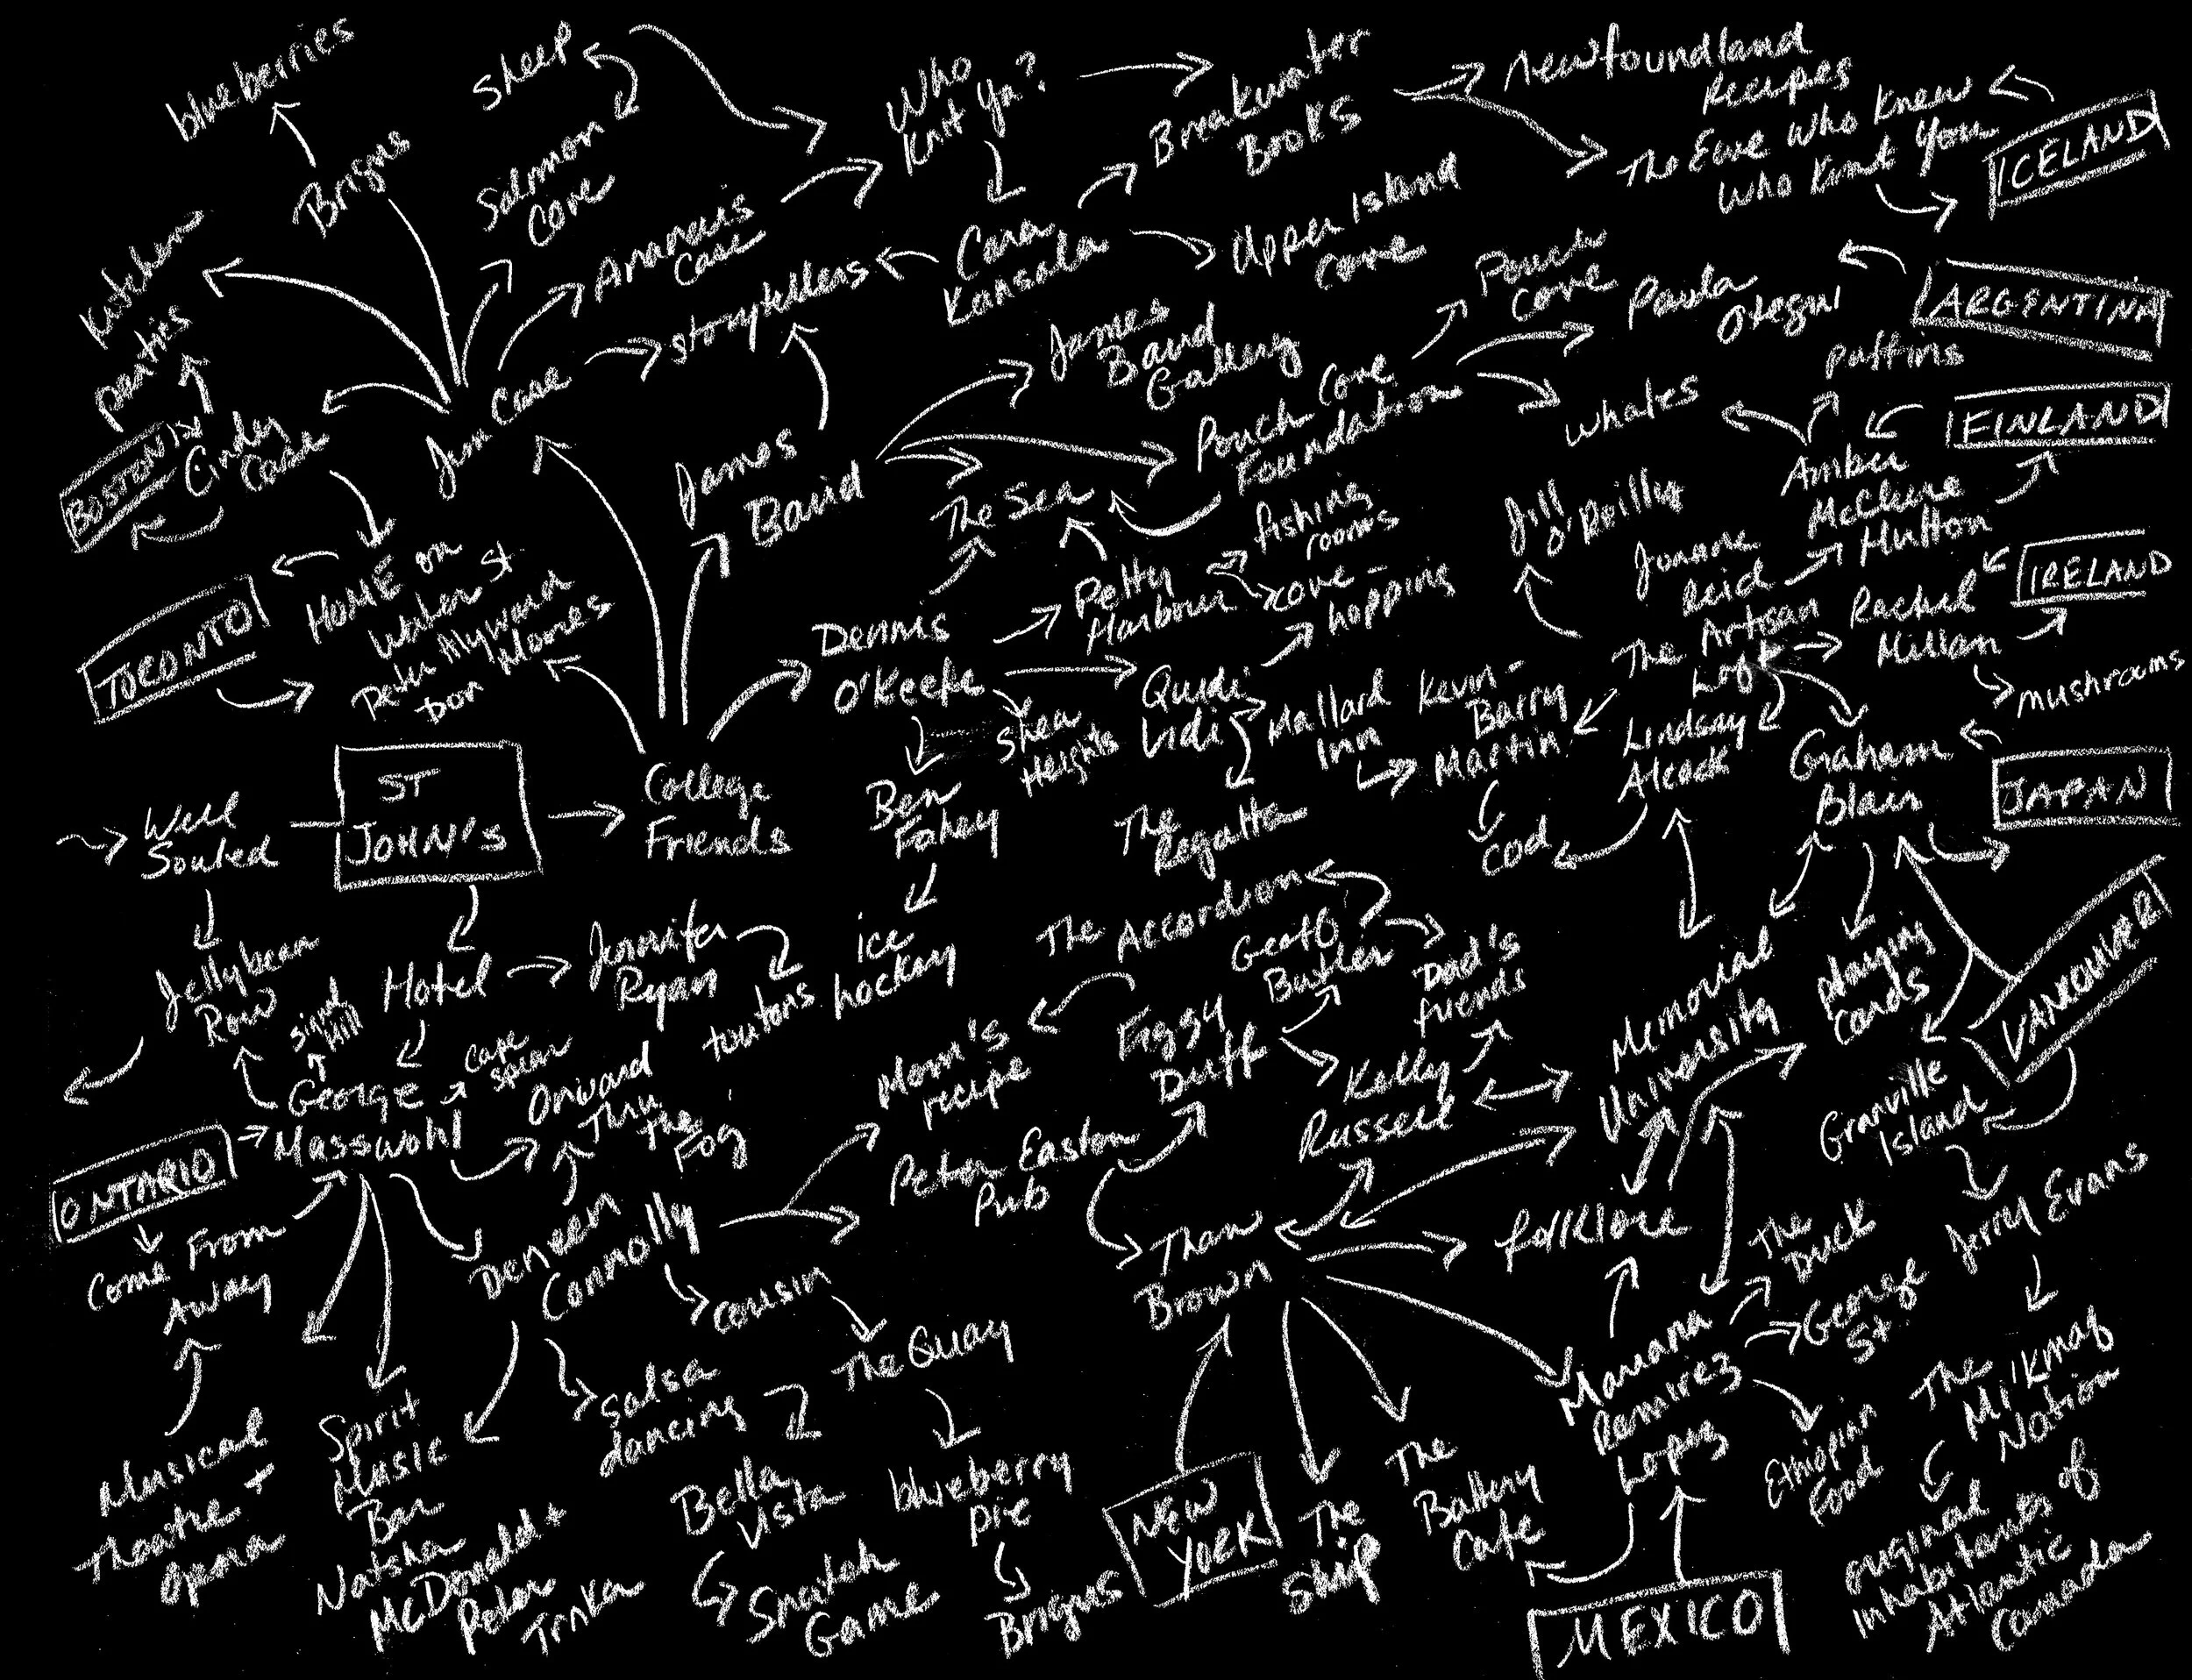 blueberries
Brigus
Sheep
Salmon
Cove
Who
Knit Ya?
Breakwater
Books
Newfoundland
Recipes
The Ewe Who Knew
Who Knit You
ICELAND
Kitchen
parties
Ananais
Case
storytellers
Cara
Kansala
Upper Island
Cove
Pouch
Cove
Paula
Otegui
ARGENTINA
Jim Case
James
Baird
James
Baird
Gallery
Pouch Cove
Foundation
The Sea
whales
puffins
FINLAND
Amber
McClure
Hutton
BOSTON
Cindy
Case
HOME on
Water St
Peter Alyward
Don Moores
TORONTO
Dennis
O'Keefe
Petty
Harbour
fishing
rooms
cove-
hopping
Quidi
Vidi
Shea
Heights
Mallard
Inn
Kevin-
Barry
Martin
Jill
O'Reilly
Joanne
Reid
The Artisan
Loft
Rachel
Millan
IRELAND
mushrooms
Lindsay
Alcock
Graham
Blair
JAPAN
Well
Souled
ST
JOHN'S
College
Friends
Ben
Fahey
The
Regatta
cod
Jellybean
Row
Signal
Hill
Hotel
Jennifer
Ryan
toutons
ice
hockey
The Accordion
Geoff
Butler
Dad's
friends
Memorial
University
playing
cards
VANCOUVER
George
Masswohl
Cape
Spear
Onward
Thru
The
Fog
Mom's
recipe
Figgy
Duff
Kelly
Russell
Granville
Island
ONTARIO
Come From
Away
Deneen
Connolly
Peter Easton
Pub
Than
Brown
folklore
The
Duck
George
St
Jerry Evans
cousin
The Quay
Salsa
dancing
Mariana
Remirez
Lopez
Ethiopian
Food
The
Mi'kmaq
Nation
Musical
Theatre +
Opera
Spirit
Music
Bar
Natsha
McDonald +
Peter
Trnka
Bella
Vista
Snatch
Game
blueberry
pie
Brigus
NEW
YORK
The
Ship
The
Battery
Cafe
MEXICO
original
inhabitants of
Atlantic
Canada